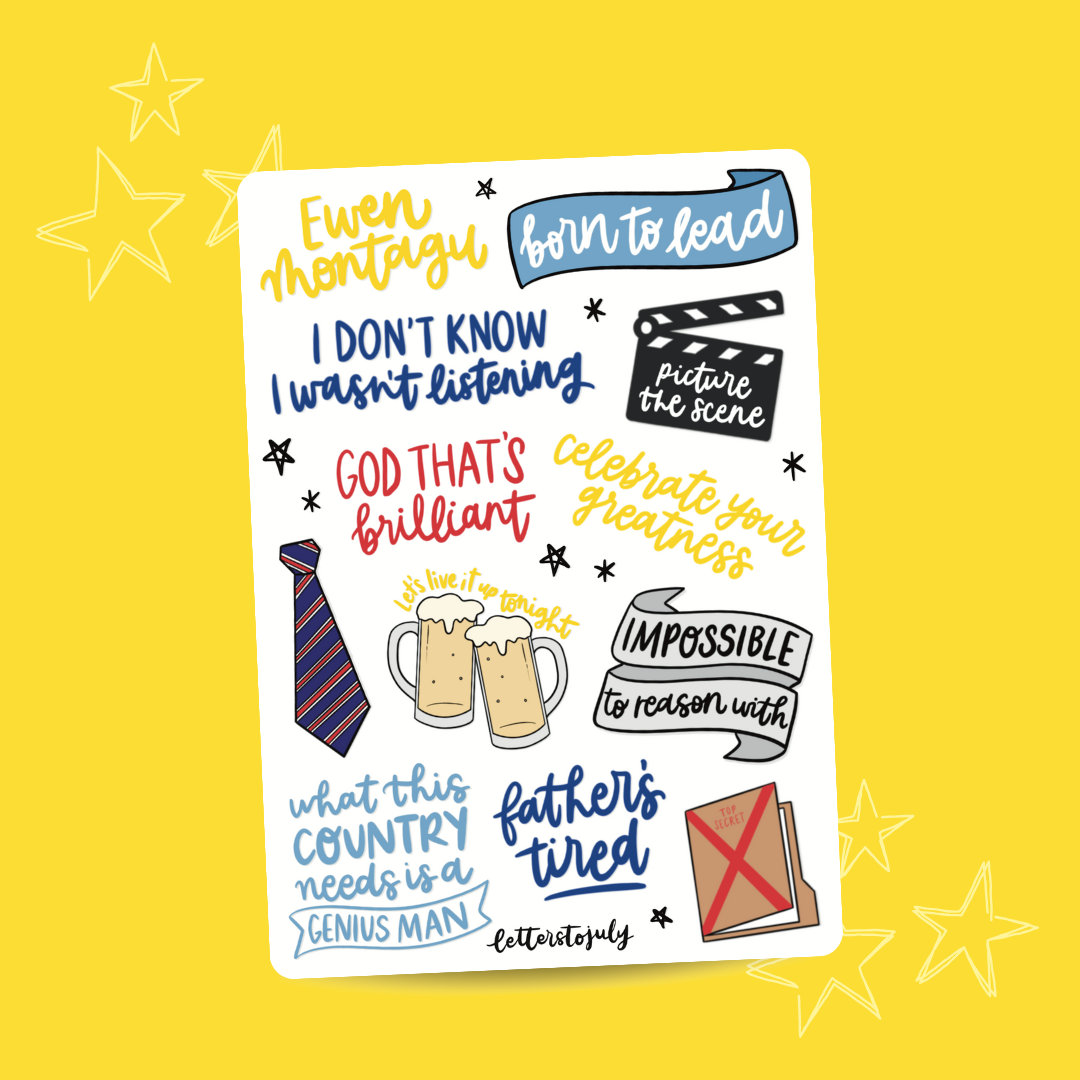 Ewen
Montagu
born to lead
I DON'T KNOW
I wasn't listening
picture
the scene
GOD THAT'S
brilliant
celebrate your
greatness
Let's live it up tonight
IMPOSSIBLE
to reason with
what this
COUNTRY
needs is a
GENIUS MAN
father's
tired
TOP
SECRET
letterstojuly